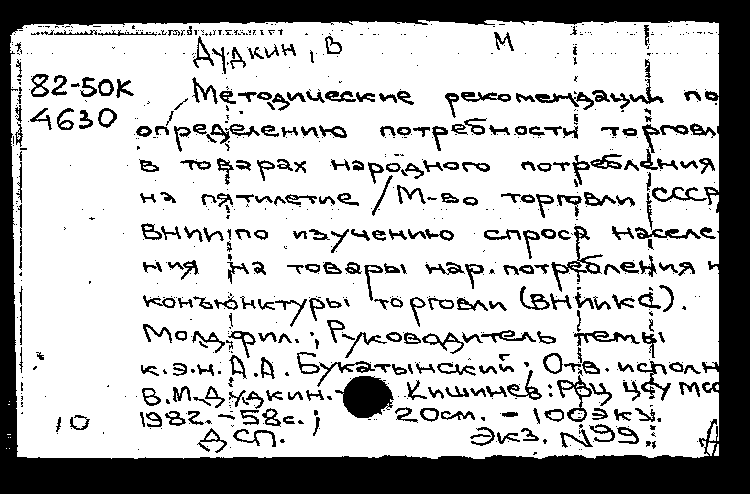 Дудкин, В М
82-50К Методические рекомендации по
4630 определению потребности торговл
в товарах народного потребления
на пятилетие / М-во торговли СССР,
ВНИИ по изучению спроса населе-
ния на товары нар. потребления и
конъюнктуры торговли (ВНИИКС).
Молд. фил.; Руководитель темы
к.э.н. А.А. Букатынский; Отв. исполн
В.М. Дудкин. - Кишинев: РВЦ ЦСУ МСС
1982. - 58с.; 20см. - 100экз.
10 ДСП. Экз. N99.